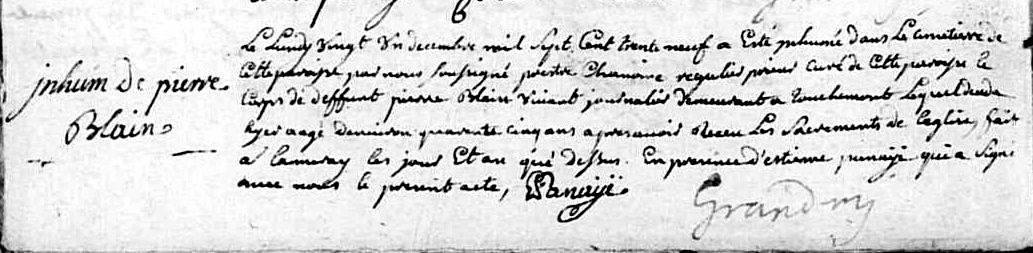 inhum de pierre
Blain
Le Lundy vingt Un decembre mil Sept Cent trente neuf a Esté inhumé dans Le cimetierre de
Cette paroisse par nous soussigné prestre Chanoine regulier prieur curé de Cette paroisse le
Corps de deffunt pierre Blain vivant journalier demeurant a touchemont Lequel deceda
hyer aagé denviron quarente cinq ans apres avoir Receu Les Sacrements de leglise, fait
a les jour Et an que dessus. En presence d'estienne panaÿé qui a Signé
avec nous le present acte, EPanaÿé
Grandry